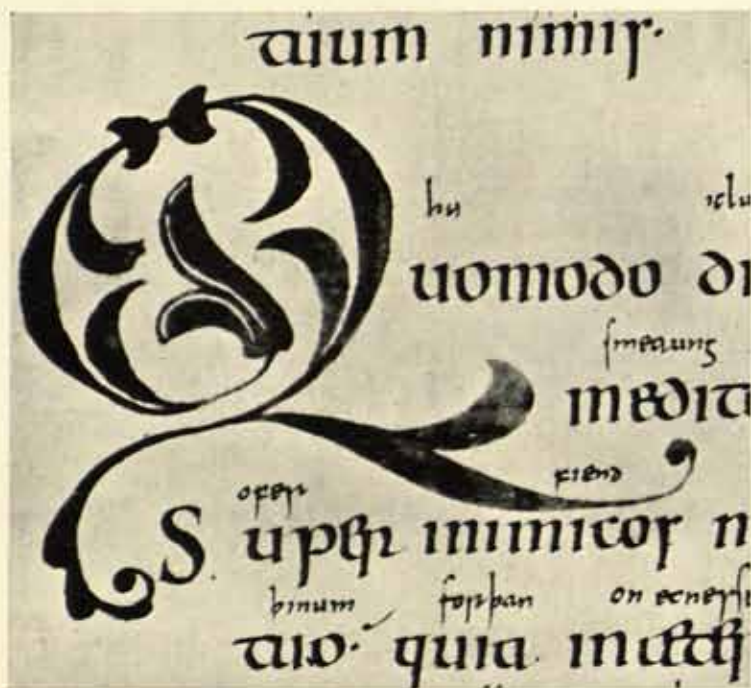 tuum nimis·
hu iclu
Quomodo di
smeaung
medita
ofer fiend
Super inimicos
þinum forþan on ecness
tuo· quia in